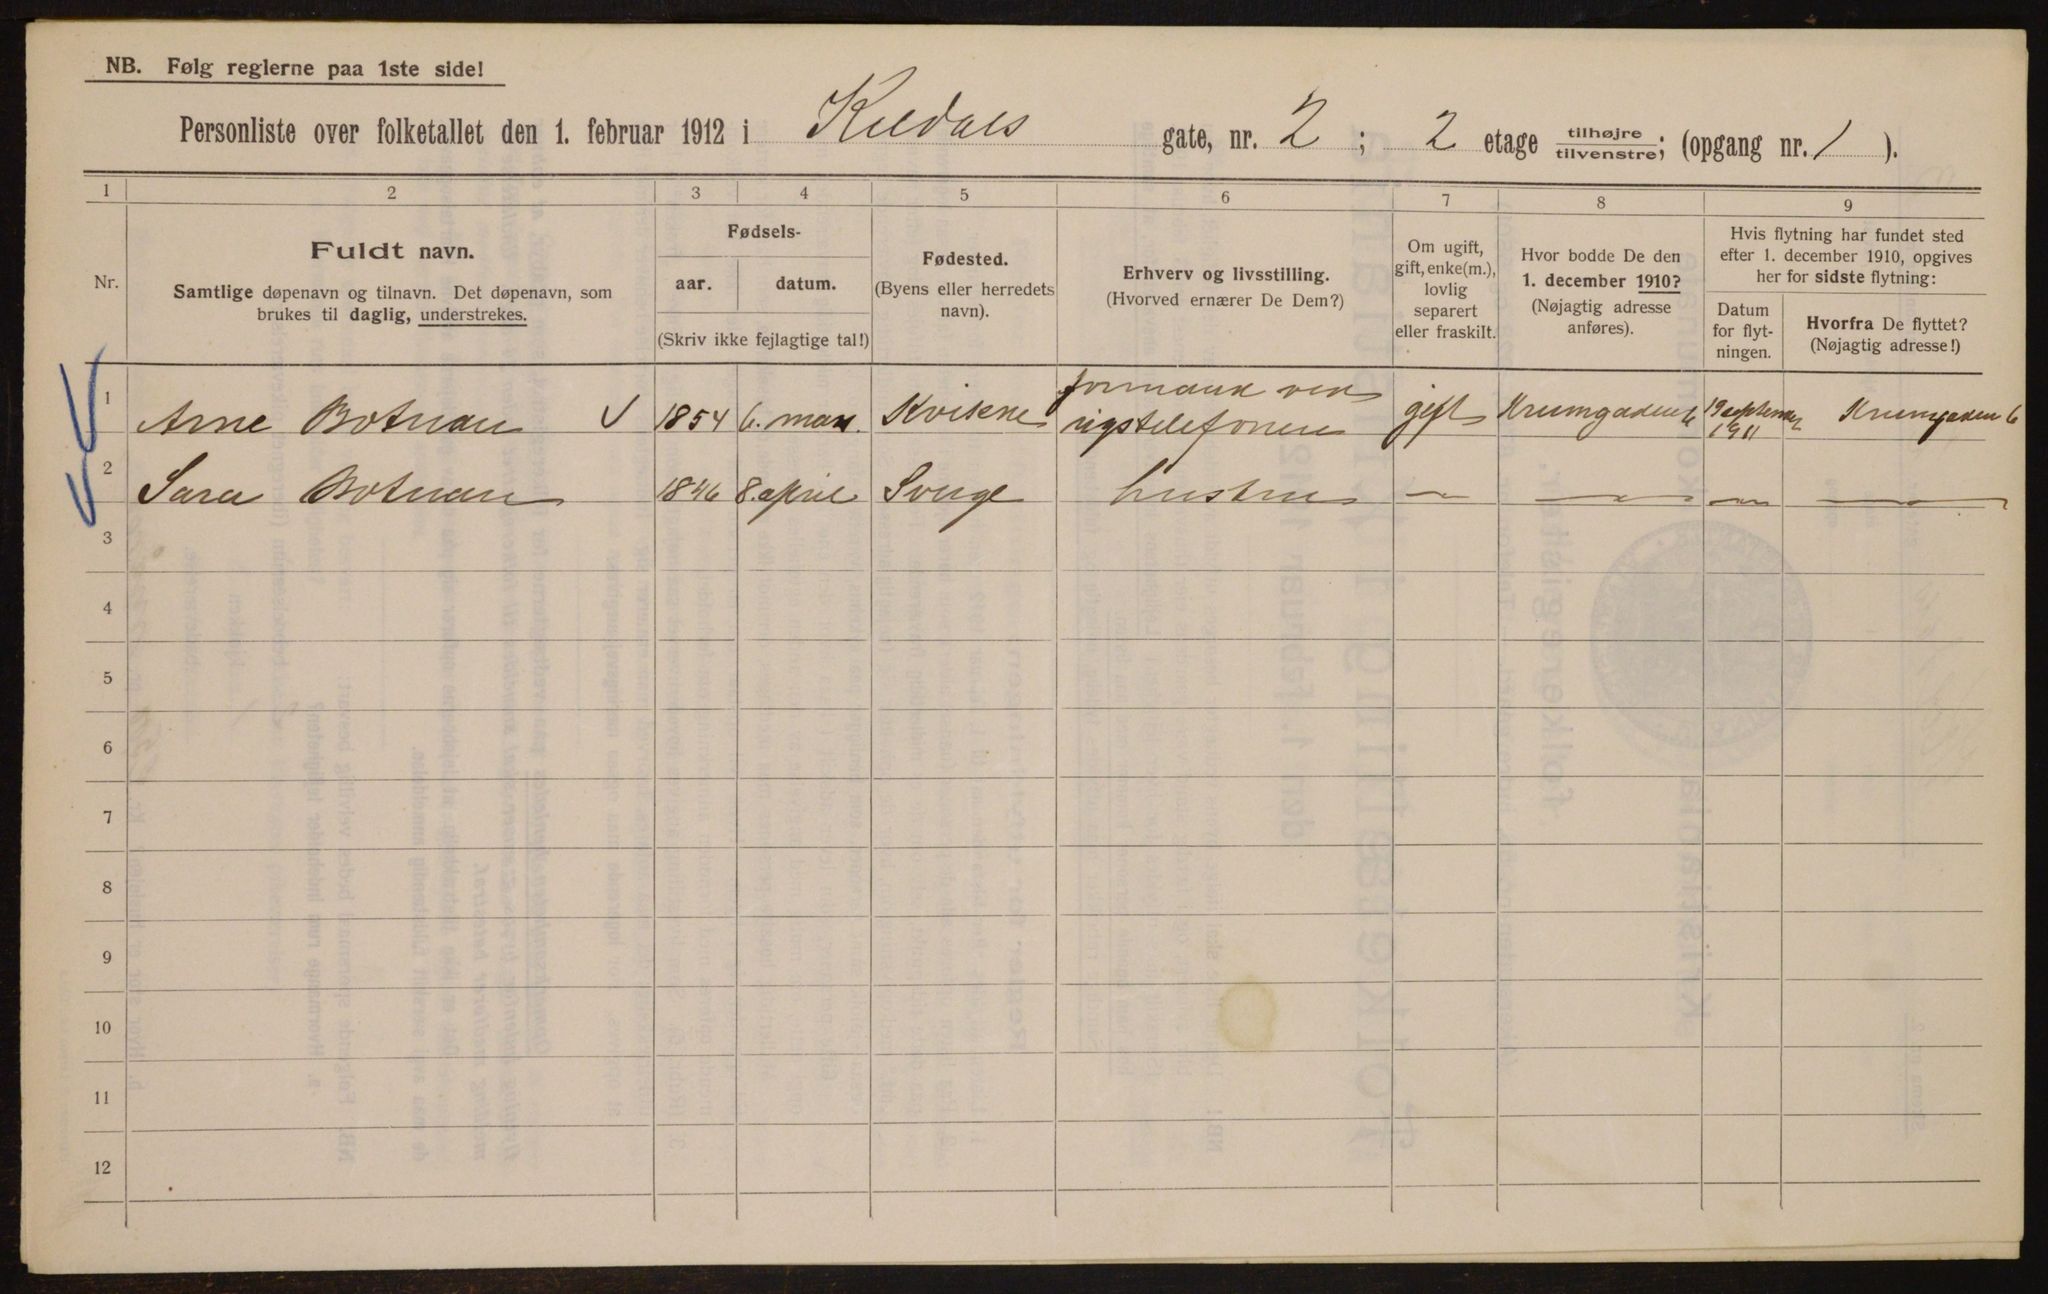 NB. Følg reglerne paa 1ste side!
Personliste over folketallet den 1. februar 1912 i Keedals gate, nr. 2 ; 2 etage tilhøjre/tilvenstre; (opgang nr. 1 ).
1 2 3 4 5 6 7 8 9
Nr.
Fuldt navn.
Samtlige døpenavn og tilnavn. Det døpenavn, som
brukes til daglig, understrekes.
Fødsels-
aar. datum.
(Skriv ikke fejlagtige tal!)
Fødested.
(Byens eller herredets
navn).
Erhverv og livsstilling.
(Hvorved ernærer De Dem?)
Om ugift,
gift, enke(m.),
lovlig
separert
eller fraskilt.
Hvor bodde De den
1. december 1910?
(Nøjagtig adresse
anføres).
Hvis flytning har fundet sted
efter 1. december 1910, opgives
her for sidste flytning:
Datum
for flyt-
ningen.
Hvorfra De flyttet?
(Nøjagtig adresse!)
1 Arne Botnan 1854 6. mars Kvikne formand ved rigstelefonen gift Krumgaden 6 1 september 1911 Krumgaden 6
2 Sara Botnan 1846 8. april Sverige hustru
3
4
5
6
7
8
9
10
11
12